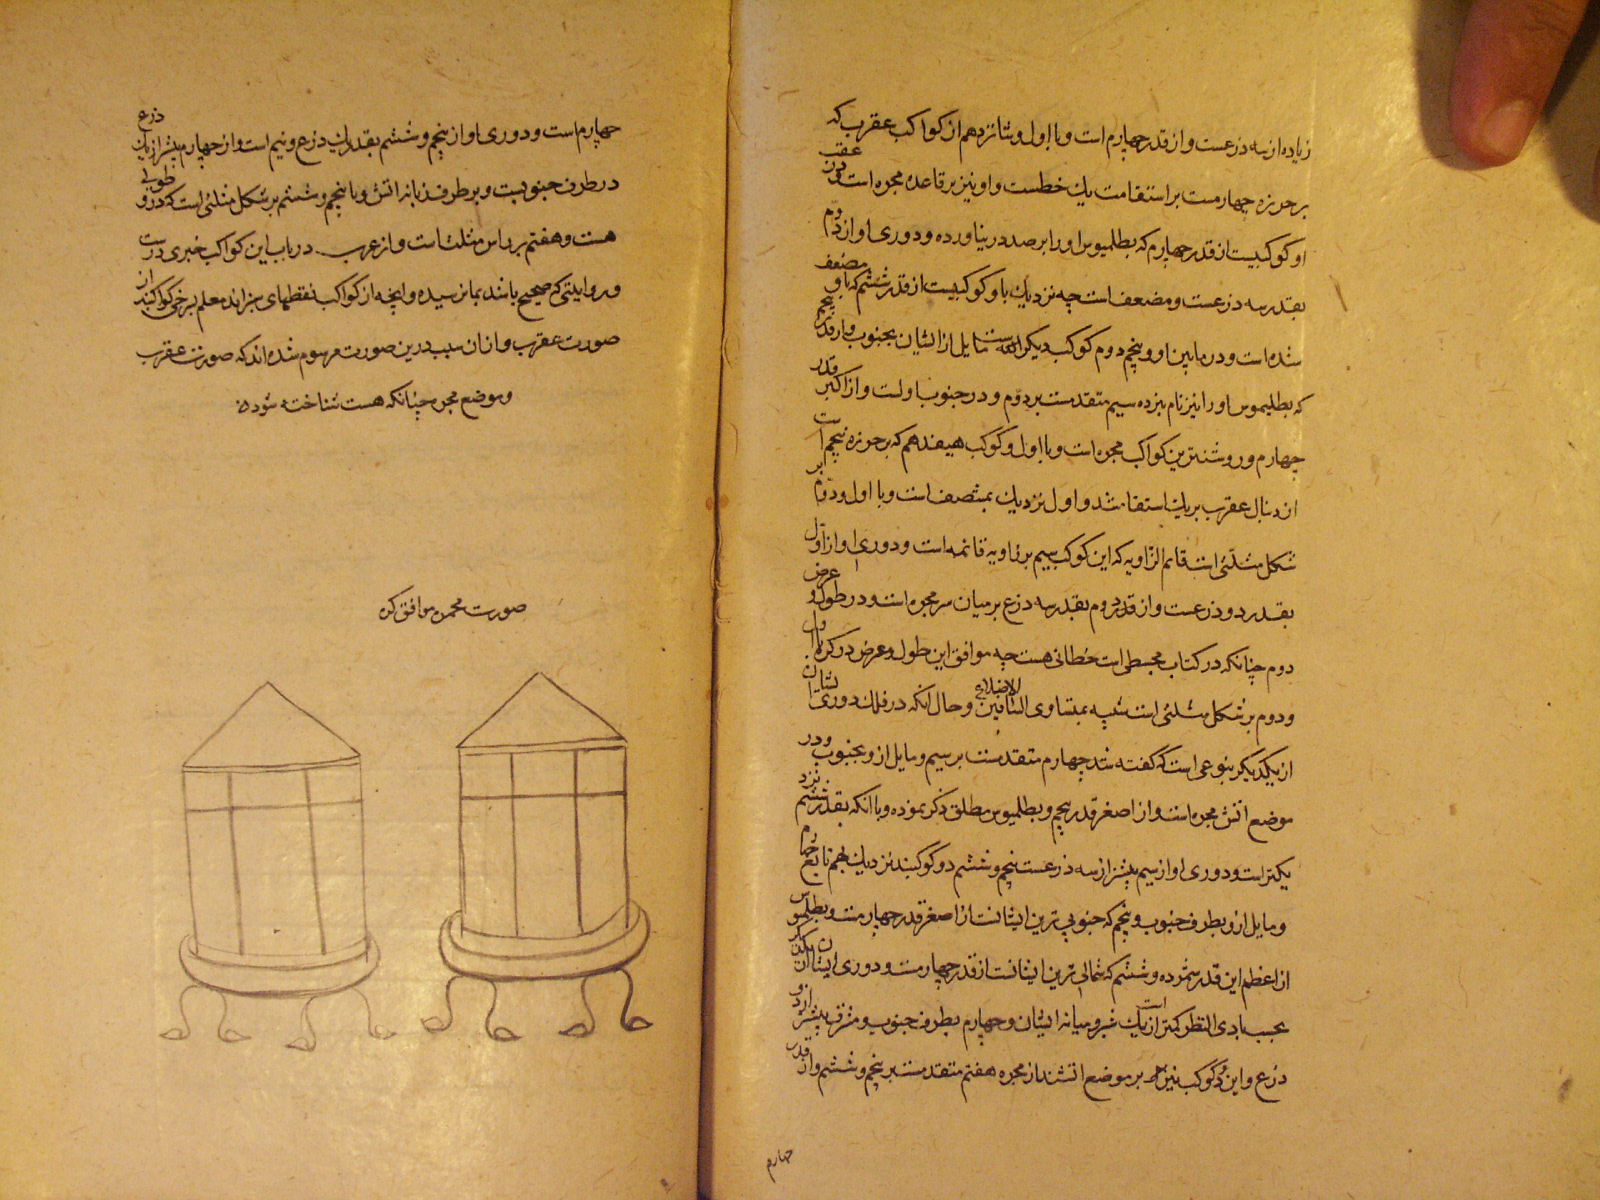 زیاده از سه ذرعست و از قدر چهارم است و با اول و شانزدهم از کواکب عقرب که
بر حرزه چهارمست بر استقامت یك خطست و او نیز بر قاعده مجمره است
او کوکبیست از قدر چهارم که بطلمیوس او را برصد در نیاورده و دوری او از دوم
بقدر سه ذرعست و مضعف است چه نزدیك باو کوکبیست از قدر ششم که باو مضعف
شده است و در مابین او و پنجم دوم کوکب دیگر است مایل از ایشان بجنوب و از قدر پنجم
که بطلیموس او را نیز نام نبرده سیم متقدمست بر دوم و در جنوب اولست و از اکبر قدر
چهارم و روشنترین کواکب مجمره است و با اول و کوکب هیفدهم که بر حرزه پنجم است
از دنبال عقرب بریك استقامتند و اول نزدیك بمنتصف است و با اول و دوم بر
شکل مثلثی است قائم الزاویه که این کوکب سیم بر زاویه قائمه است و دوری او از اول
بقدر دو ذرعست و از قدر دوم بقدر سه ذرع بر میان سر مجمره است و در طول و عرض
دوم چنانکه در کتاب مجسطی است خطائی هست چه موافق این طول و عرض در کره با اول
و دوم بر شکل مثلثی است شبیه بمتساوی الساقین الاضلاع و حال آنکه در فلك دوری ایشان
از یکدیگر بنوعی است که گفته شد چهارم متقدمست بر سیم و مایل ازو بجنوب و در
موضع آتش مجمره است و از اصغر قدر پنجم و بطلمیوس مطلق ذکر نموده و با آنکه بقدر ششم نزد
یکتر است و دوری او از سیم بیشتر از سه ذرعست پنجم و ششم دو کوکبند نزدیك بهم تابع چهارم
و مایل ازو بطرف جنوب و پنجم که جنوبی ترین ایشانست از اصغر قدر چهارمست و بطلمیوس
از اعظم این قدر شمرده و ششم که شمالی ترین ایشانست از قدر چهارمست و دوری ایشان از یکدیگر
بحسب بادی النظر کمتر از یك شبر است و میانه ایشان و چهارم بطرف جنوب و مشرق بیشتر از دو
ذرع و این دو کوکب نیز بر موضع آتشند از مجمره هفتم متقدمست بر پنجم و ششم و از قدر
چهارم
چهارم است و دوری او از پنجم و ششم بقدر یك ذرع و نیم است و از چهارم بیشتر از یك ذرع
در طرف جنوبیست و بر طرف زبانه آتش و با پنجم و ششم بر شکل مثلثی است که درو طولی
هست و هفتم بر راس مثلث است و از عرب در باب این کواکب خبری درست
و روایتی که صحیح باشد بما نرسیده و آنچه از کواکب نقطهای سبز اند معلم برخی کواکبند از
صورت عقرب و از ان سبب درین صورت مرسوم شده اند که صورت عقرب
و موضع مجمره چنانکه هست شناخته شود
صورت مجمره موافق کره